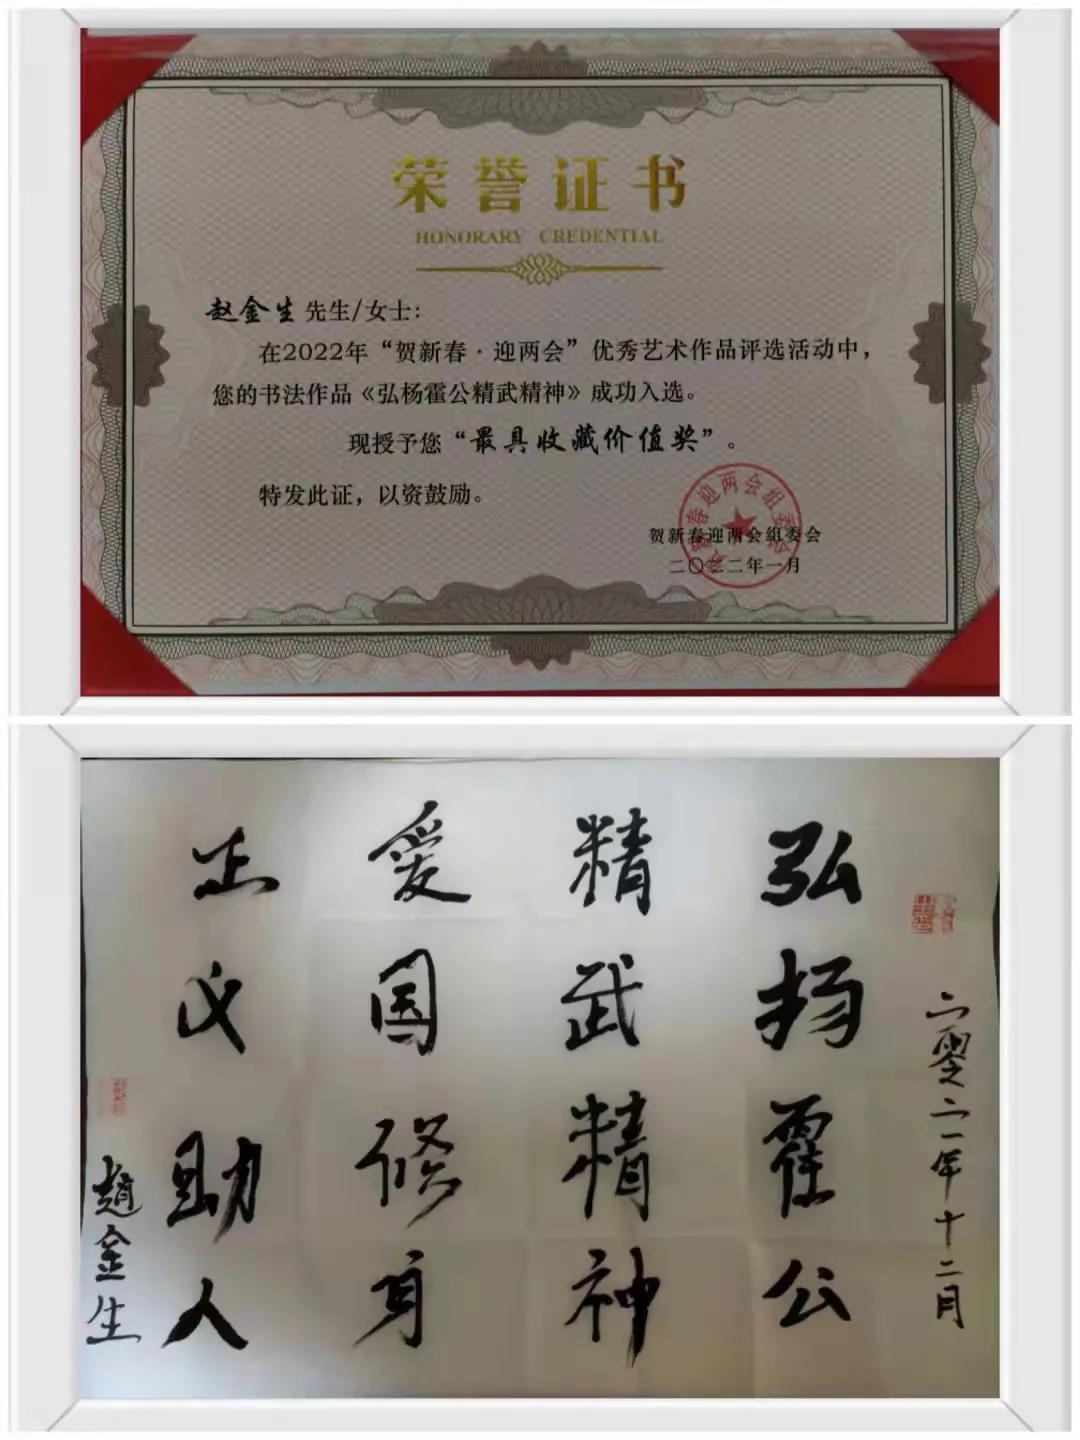 荣誉证书
HONORARY CREDENTIAL
赵金生 先生/女士：
在2022年“贺新春·迎两会”优秀艺术作品评选活动中，
您的书法作品《弘杨霍公精武精神》成功入选。
现授予您“最具收藏价值奖”。
特发此证，以资鼓励。
贺新春迎两会组委会
二〇二二年一月
贺新春迎两会组委会
二零二一年十二月
弘扬霍公
精武精神
爱国修身
正义助人
趙金生